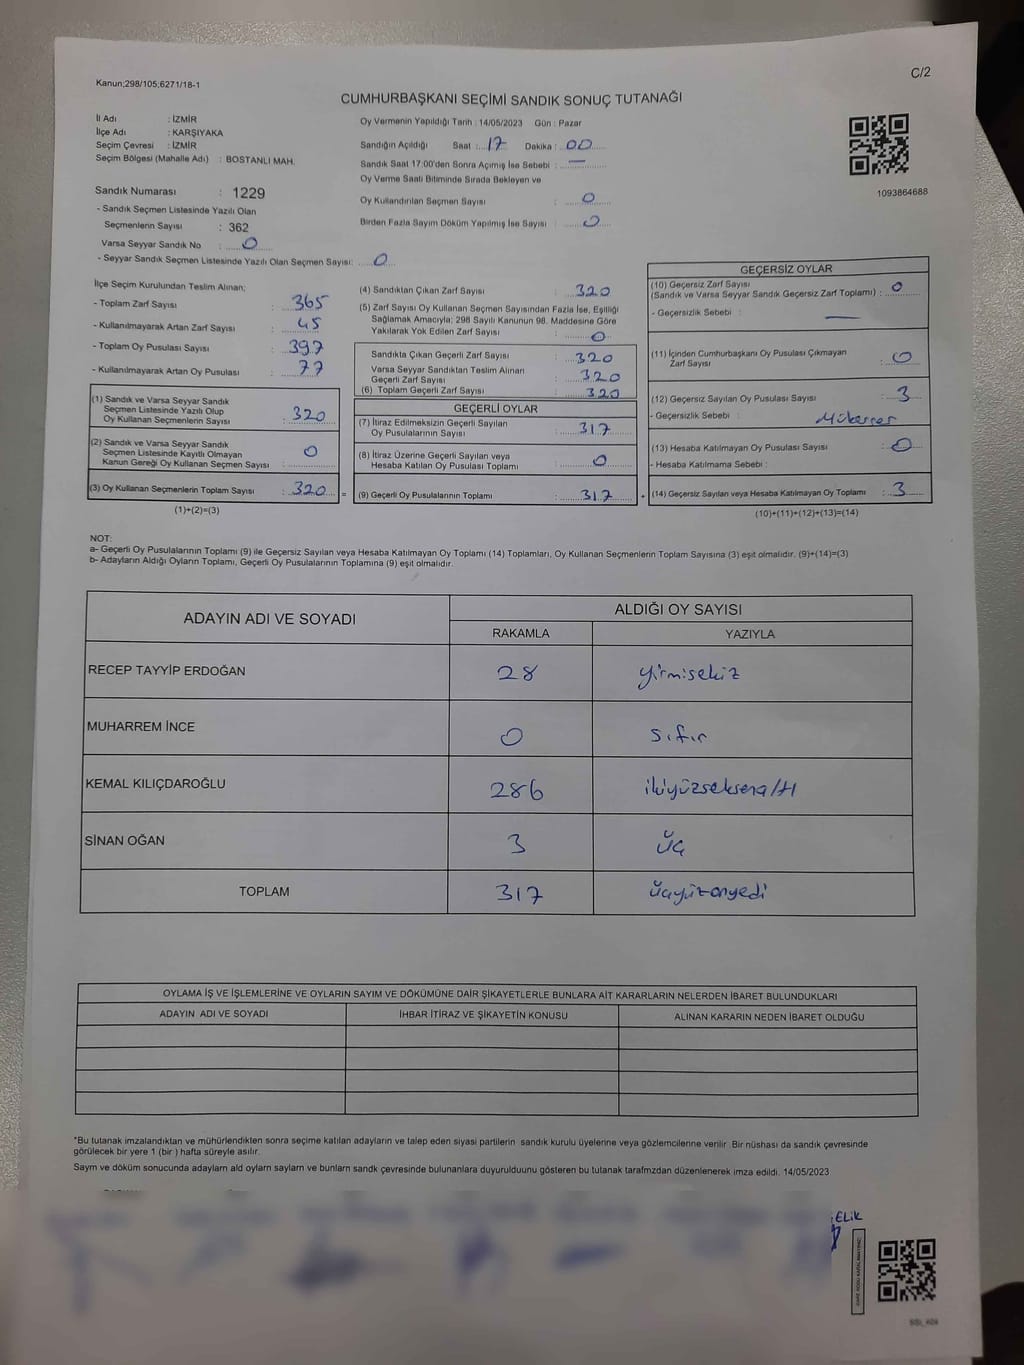 C/2
Kanun;298/105;6271/18-1
CUMHURBAŞKANI SEÇİMİ SANDIK SONUÇ TUTANAĞI
İl Adı : İZMİR
İlçe Adı : KARŞIYAKA
Seçim Çevresi : İZMİR
Seçim Bölgesi (Mahalle Adı) : BOSTANLI MAH.
Oy Vermenin Yapıldığı Tarih : 14/05/2023 Gün : Pazar
Sandığın Açıldığı Saat : 17 Dakika : 00
Sandık Saat 17:00'den Sonra Açımış İse Sebebi : —
Oy Verme Saati Bitiminde Sırada Bekleyen ve
Oy Kullandırılan Seçmen Sayısı : 0
Birden Fazla Sayım Döküm Yapılmış İse Sayısı : 0
1093864688
Sandık Numarası : 1229
- Sandık Seçmen Listesinde Yazılı Olan
Seçmenlerin Sayısı : 362
Varsa Seyyar Sandık No : 0
- Seyyar Sandık Seçmen Listesinde Yazılı Olan Seçmen Sayısı: 0
İlçe Seçim Kurulundan Teslim Alınan;
- Toplam Zarf Sayısı : 365
- Kullanılmayarak Artan Zarf Sayısı : 45
- Toplam Oy Pusulası Sayısı : 397
- Kullanılmayarak Artan Oy Pusulası : 77
(1) Sandık ve Varsa Seyyar Sandık
Seçmen Listesinde Yazılı Olup
Oy Kullanan Seçmenlerin Sayısı : 320
(2) Sandık ve Varsa Seyyar Sandık
Seçmen Listesinde Kayıtlı Olmayan
Kanun Gereği Oy Kullanan Seçmen Sayısı : 0
(3) Oy Kullanan Seçmenlerin Toplam Sayısı : 320 =
(1)+(2)=(3)
(4) Sandıktan Çıkan Zarf Sayısı : 320
(5) Zarf Sayısı Oy Kullanan Seçmen Sayısından Fazla İse, Eşitliği
Sağlamak Amacıyla; 298 Sayılı Kanunun 98. Maddesine Göre
Yakılarak Yok Edilen Zarf Sayısı : 0
Sandıkta Çıkan Geçerli Zarf Sayısı : 320
Varsa Seyyar Sandıktan Teslim Alınan
Geçerli Zarf Sayısı : 320
(6) Toplam Geçerli Zarf Sayısı : 320
GEÇERLİ OYLAR
(7) İtiraz Edilmeksizin Geçerli Sayılan
Oy Pusulalarının Sayısı : 317
(8) İtiraz Üzerine Geçerli Sayılan veya
Hesaba Katılan Oy Pusulası Toplamı : 0
(9) Geçerli Oy Pusulalarının Toplamı : 317 +
GEÇERSİZ OYLAR
(10) Geçersiz Zarf Sayısı
(Sandık ve Varsa Seyyar Sandık Geçersiz Zarf Toplamı) : 0
- Geçersizlik Sebebi : —
(11) İçinden Cumhurbaşkanı Oy Pusulası Çıkmayan
Zarf Sayısı : 0
(12) Geçersiz Sayılan Oy Pusulası Sayısı : 3
- Geçersizlik Sebebi : Mükerrer
(13) Hesaba Katılmayan Oy Pusulası Sayısı : 0
- Hesaba Katılmama Sebebi :
(14) Geçersiz Sayılan veya Hesaba Katılmayan Oy Toplamı : 3
(10)+(11)+(12)+(13)=(14)
NOT:
a- Geçerli Oy Pusulalarının Toplamı (9) ile Geçersiz Sayılan veya Hesaba Katılmayan Oy Toplamı (14) Toplamları, Oy Kullanan Seçmenlerin Toplam Sayısına (3) eşit olmalıdır. (9)+(14)=(3)
b- Adayların Aldığı Oyların Toplamı, Geçerli Oy Pusulalarının Toplamına (9) eşit olmalıdır.
ADAYIN ADI VE SOYADI ALDIĞI OY SAYISI
RAKAMLA YAZIYLA
RECEP TAYYİP ERDOĞAN 28 yirmisekiz
MUHARREM İNCE 0 sıfır
KEMAL KILIÇDAROĞLU 286 ikiyüzseksenaltı
SİNAN OĞAN 3 üç
TOPLAM 317 üçyüzonyedi
OYLAMA İŞ VE İŞLEMLERİNE VE OYLARIN SAYIM VE DÖKÜMÜNE DAİR ŞİKAYETLERLE BUNLARA AİT KARARLARIN NELERDEN İBARET BULUNDUKLARI
ADAYIN ADI VE SOYADI İHBAR İTİRAZ VE ŞİKAYETİN KONUSU ALINAN KARARIN NEDEN İBARET OLDUĞU
*Bu tutanak imzalandıktan ve mühürlendikten sonra seçime katılan adayların ve talep eden siyasi partilerin sandık kurulu üyelerine veya gözlemcilenne verilir. Bir nüshası da sandık çevresinde
görülecek bir yere 1 (bir ) hafta süreyle asılır.
Saym ve döküm sonucunda adaylarn ald oylarn saylarn ve bunların sandk çevresinde bulunanlara duyurulduunu gösteren bu tutanak tarafmzdan düzenlenerek imza edildi. 14/05/2023
ELİK